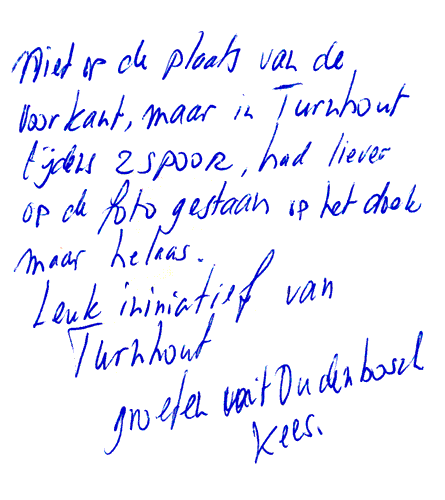 Niet op de plaats van de
voorkant, maar in Turnhout
tijdens 2SPOOR, had liever
op de foto gestaan op het doek
maar helaas.
Leuk ininiatief van
Turnhout
groeten uit Oudenbosch
Kees.